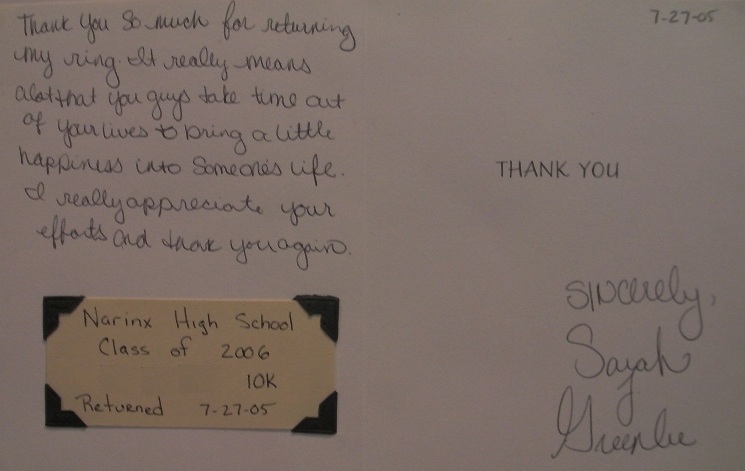 Thank You so much for returning
my ring. It really means
alot that you guys take time out
of your lives to bring a little
happiness into someone's life.
I really appreciate your
efforts and thank you again.
Narinx High School
Class of 2006
10K
Returned 7-27-05
7-27-05
THANK YOU
Sincerely,
Sarah
Greenlee